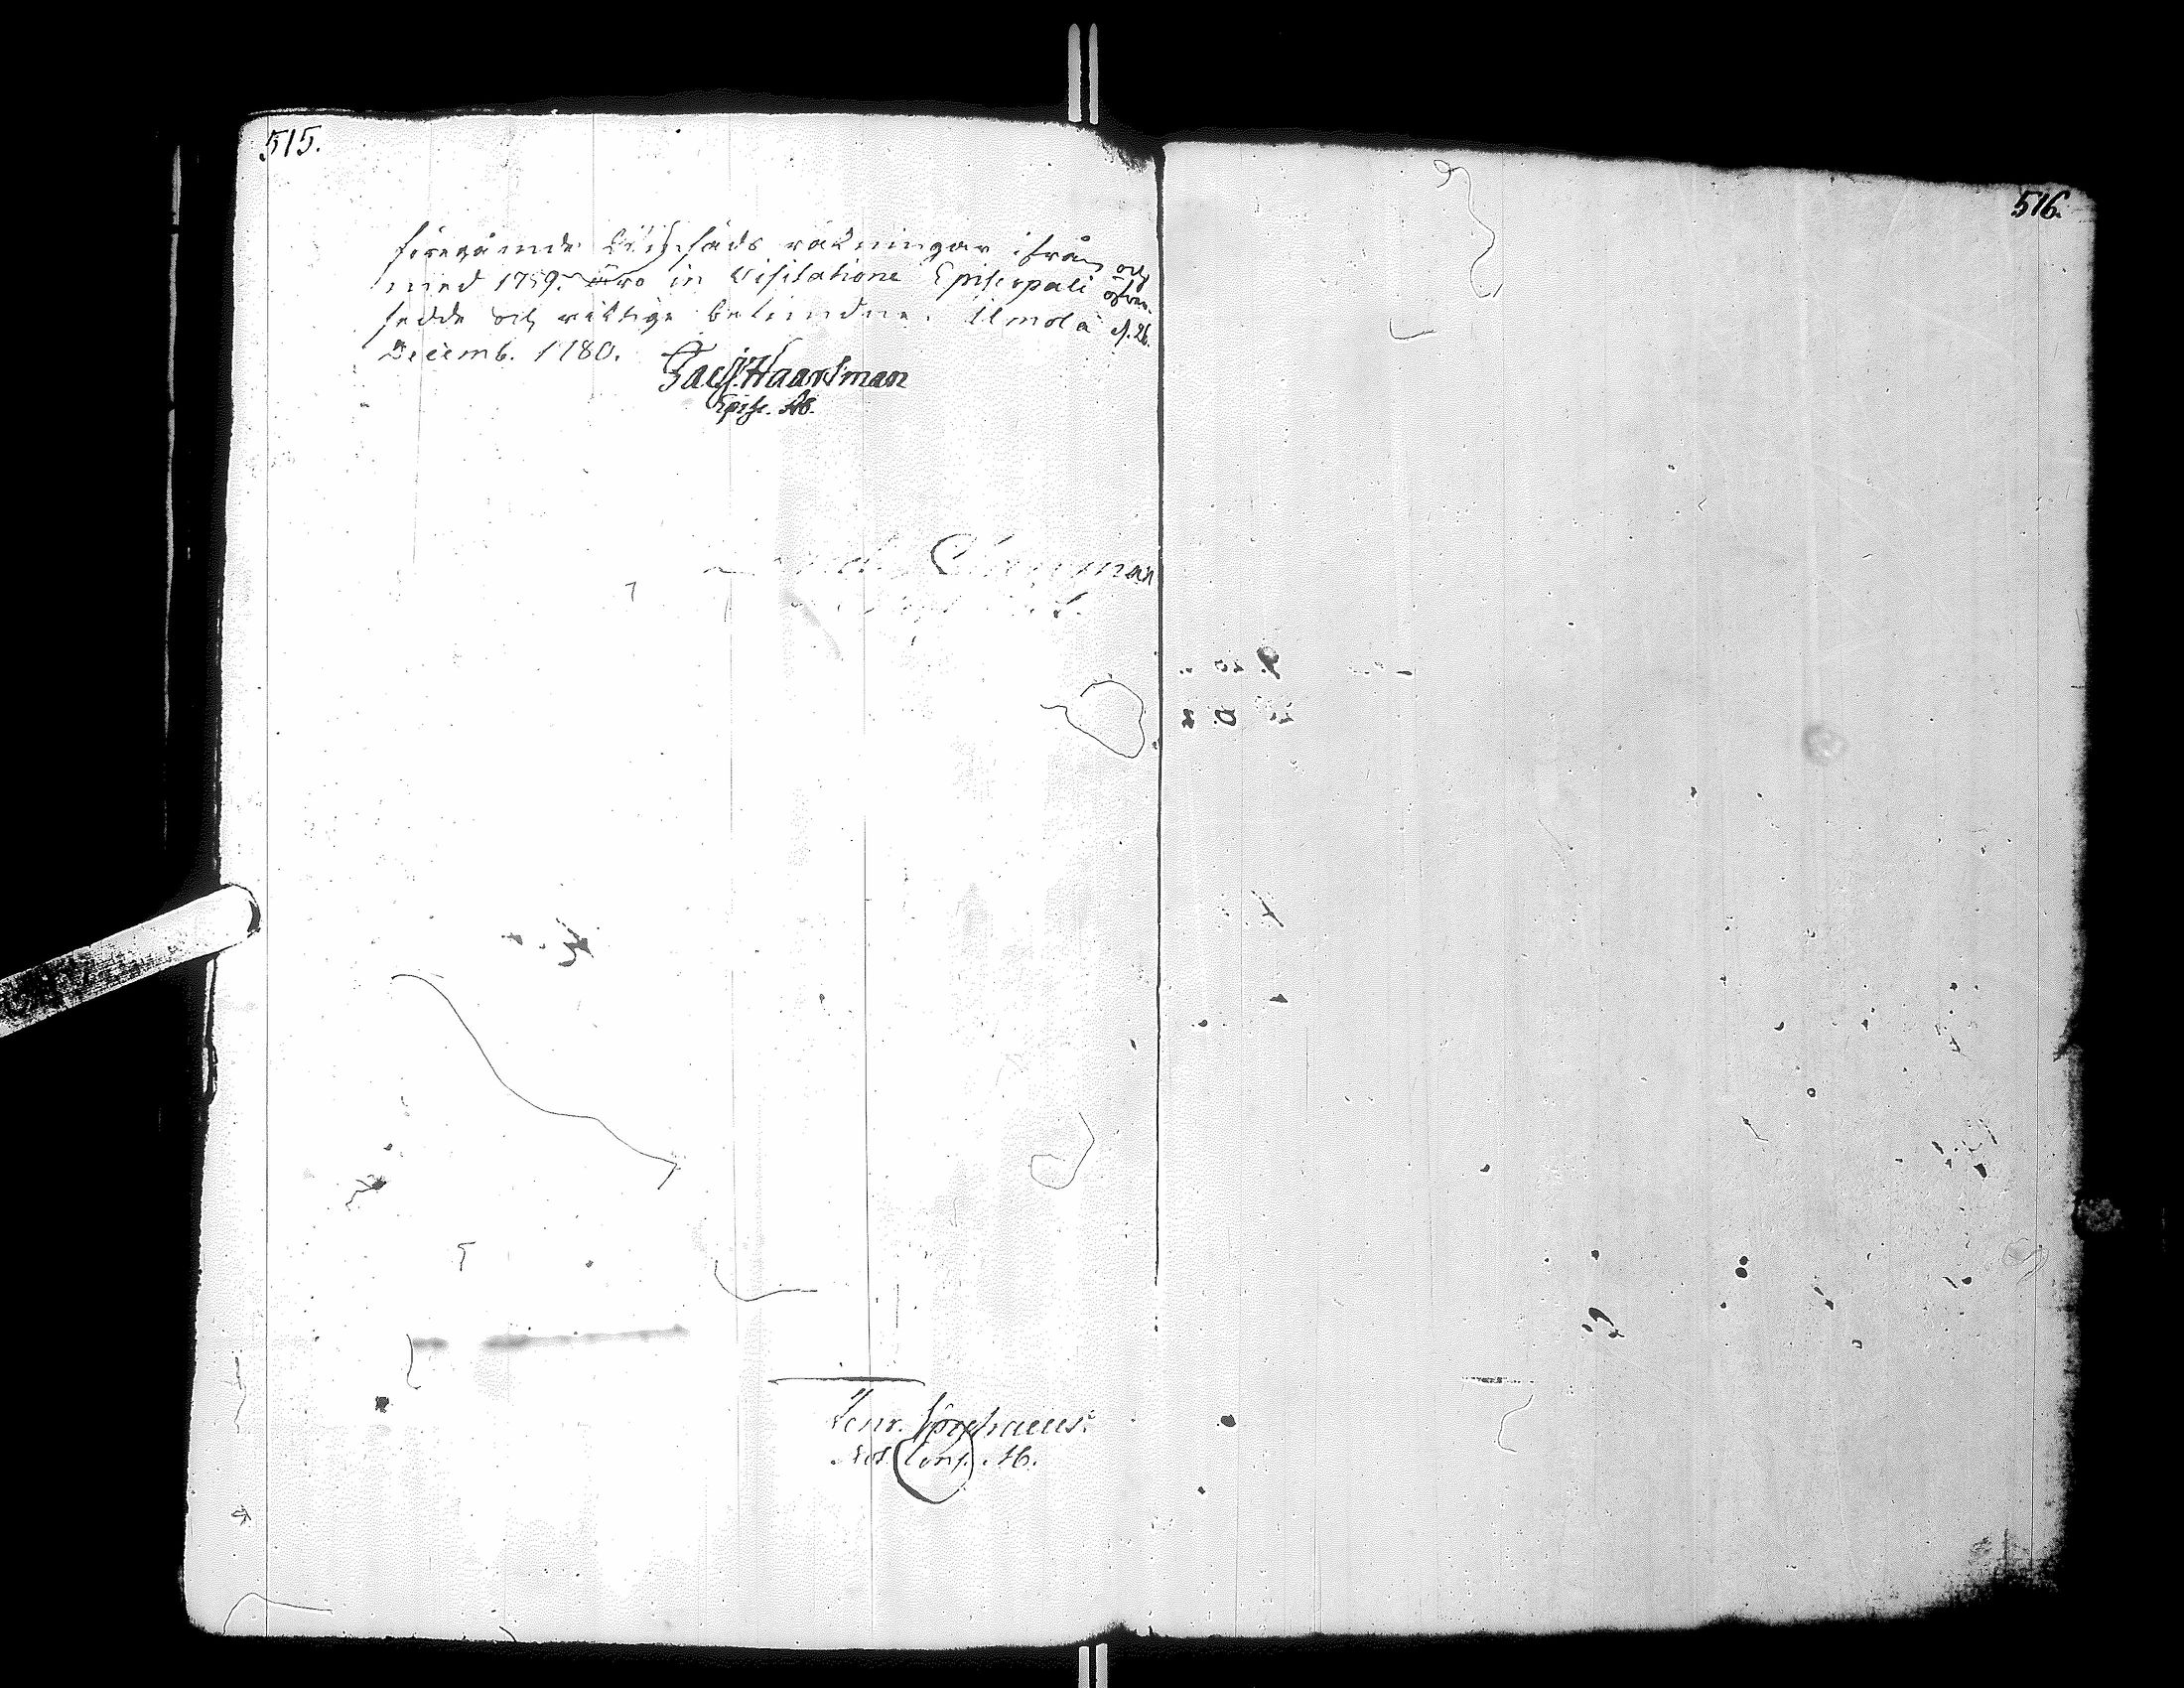 515.
föregående räkningar ifrån och
med 1759. äro in Visitatione Episcopali öfver-
sedde och riktige befundne. Ilmola d. 26.
Decemb. 1780.
Jac. Haartman
Episc. Ab.
Henr.
Not. Cons. Ab.
516.